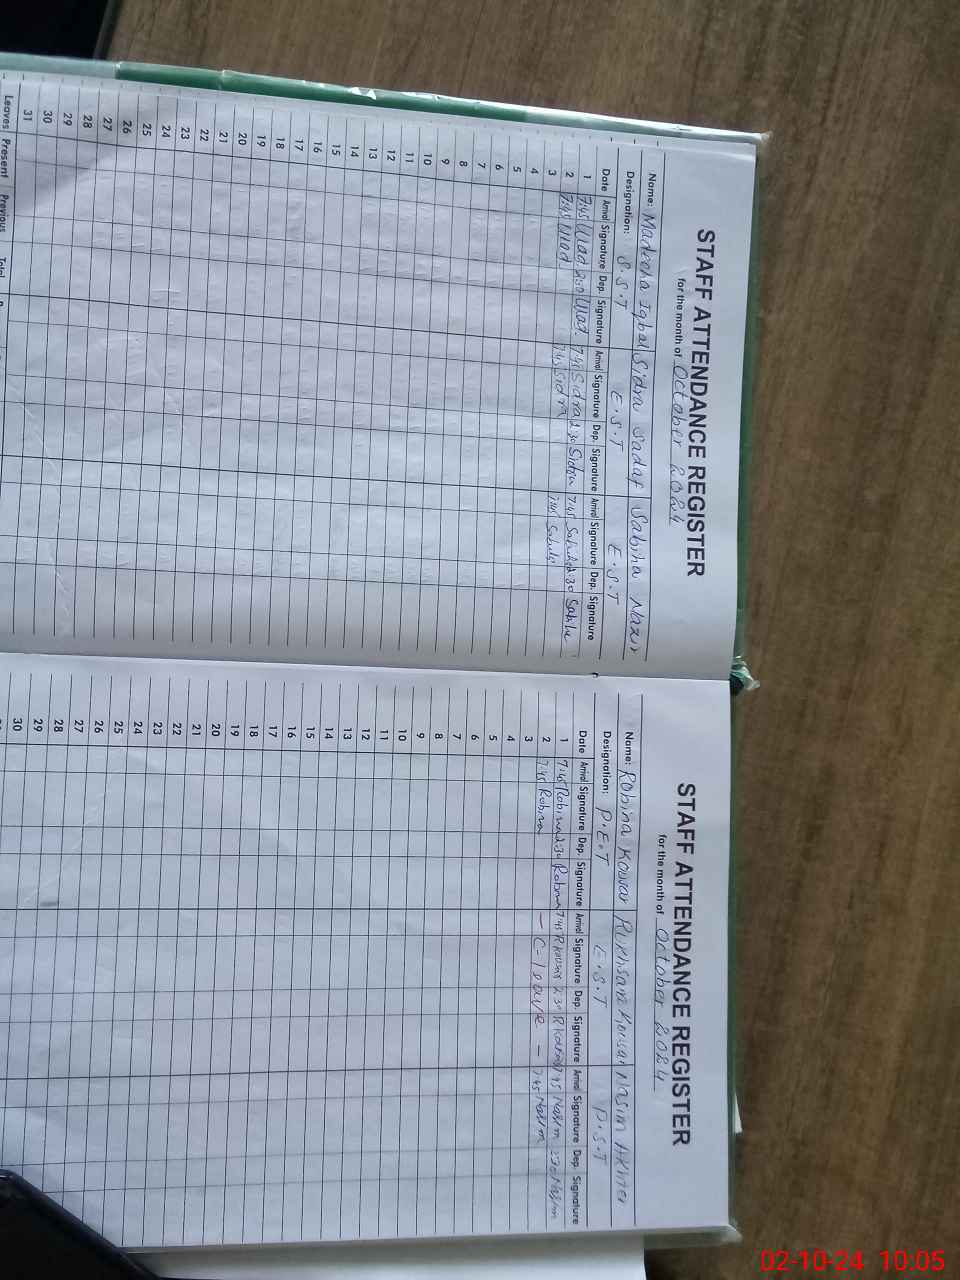 STAFF ATTENDANCE REGISTER
for the month of October 2024
Name: Madeeha Iqbal Sidra Sadaf Sabiha Nazir
Designation: S.S.T E.S.T E.S.T
Date Arrival Signature Dep. Signature Arrival Signature Dep. Signature Arrival Signature Dep. Signature
1 7:45 2:30 7:45 Sidra 2:30 Sidra 7:45 Sabiha 2:30 Sabiha
2 7:45 7:45 Sidra 7:45 Sabiha
3
4
5
6
7
8
9
10
11
12
13
14
15
16
17
18
19
20
21
22
23
24
25
26
27
28
29
30
31
Leaves Present Previous Total
STAFF ATTENDANCE REGISTER
for the month of October 2024
Name: Robina Kousar Rukhsana Kousar Nasim Akhter
Designation: P.E.T E.S.T P.S.T
Date Arrival Signature Dep. Signature Arrival Signature Dep. Signature Arrival Signature Dep. Signature
1 7:45 Robina 2:30 Robina 7:45 R Kousar 2:30 R Kousar 7:45 Nasim 2:30 Nasim
2 7:45 Robina — C-leave — 7:45 Nasim
3
4
5
6
7
8
9
10
11
12
13
14
15
16
17
18
19
20
21
22
23
24
25
26
27
28
29
30
02-10-24 10:05